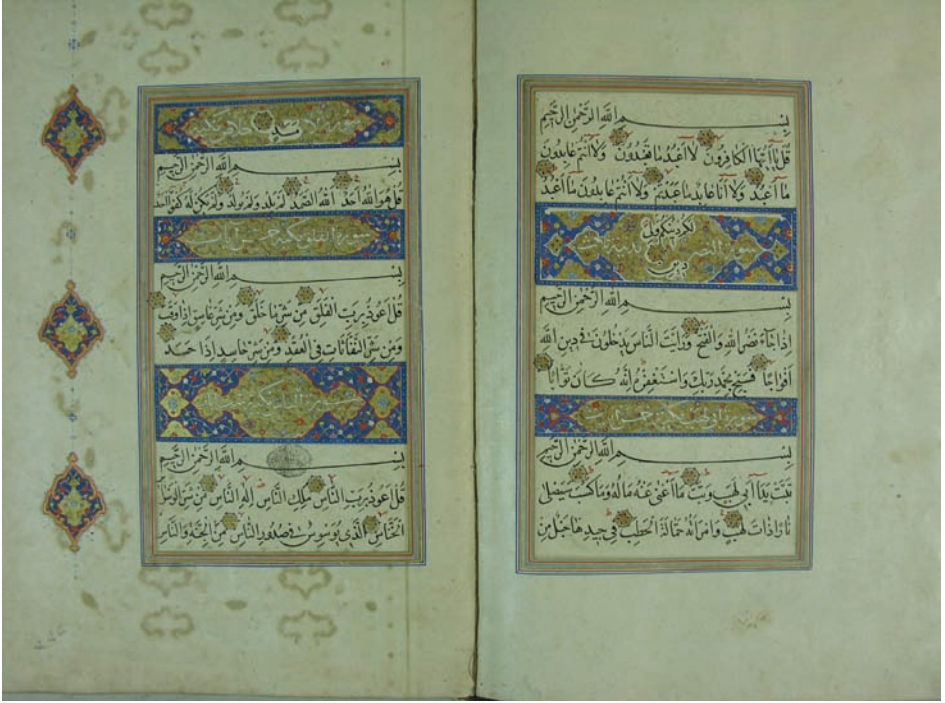 بِسْمِ اللَّهِ الرَّحْمٰنِ الرَّحِيمِ
قُلْ يَاأَيُّهَا الْكَافِرُونَ لَا أَعْبُدُ مَا تَعْبُدُونَ وَلَا أَنْتُمْ عَابِدُونَ
مَا أَعْبُدُ وَلَا أَنَا عَابِدٌ مَا عَبَدْتُمْ وَلَا أَنْتُمْ عَابِدُونَ مَا أَعْبُدُ
لَكُمْ دِينُكُمْ وَلِيَ
سورة النصر
دِينِ
بِسْمِ اللَّهِ الرَّحْمٰنِ الرَّحِيمِ
إِذَا جَاءَ نَصْرُ اللَّهِ وَالْفَتْحُ وَرَأَيْتَ النَّاسَ يَدْخُلُونَ فِي دِينِ اللَّهِ
أَفْوَاجًا فَسَبِّحْ بِحَمْدِ رَبِّكَ وَاسْتَغْفِرْهُ إِنَّهُ كَانَ تَوَّابًا
بِسْمِ اللَّهِ الرَّحْمٰنِ الرَّحِيمِ
تَبَّتْ يَدَا أَبِي لَهَبٍ وَتَبَّ مَا أَغْنَى عَنْهُ مَالُهُ وَمَا كَسَبَ سَيَصْلَى
نَارًا ذَاتَ لَهَبٍ وَامْرَأَتُهُ حَمَّالَةَ الْحَطَبِ فِي جِيدِهَا حَبْلٌ مِنْ
مَسَدٍ
بِسْمِ اللَّهِ الرَّحْمٰنِ الرَّحِيمِ
قُلْ هُوَ اللَّهُ أَحَدٌ اللَّهُ الصَّمَدُ لَمْ يَلِدْ وَلَمْ يُولَدْ وَلَمْ يَكُنْ لَهُ كُفُوًا أَحَدٌ
سورة الفلق مكية خمس آيات
بِسْمِ اللَّهِ الرَّحْمٰنِ الرَّحِيمِ
قُلْ أَعُوذُ بِرَبِّ الْفَلَقِ مِنْ شَرِّ مَا خَلَقَ وَمِنْ شَرِّ غَاسِقٍ إِذَا وَقَبَ
وَمِنْ شَرِّ النَّفَّاثَاتِ فِي الْعُقَدِ وَمِنْ شَرِّ حَاسِدٍ إِذَا حَسَدَ
بِسْمِ اللَّهِ الرَّحْمٰنِ الرَّحِيمِ
قُلْ أَعُوذُ بِرَبِّ النَّاسِ مَلِكِ النَّاسِ إِلٰهِ النَّاسِ مِنْ شَرِّ الْوَسْوَاسِ
الْخَنَّاسِ الَّذِي يُوَسْوِسُ فِي صُدُورِ النَّاسِ مِنَ الْجِنَّةِ وَالنَّاسِ